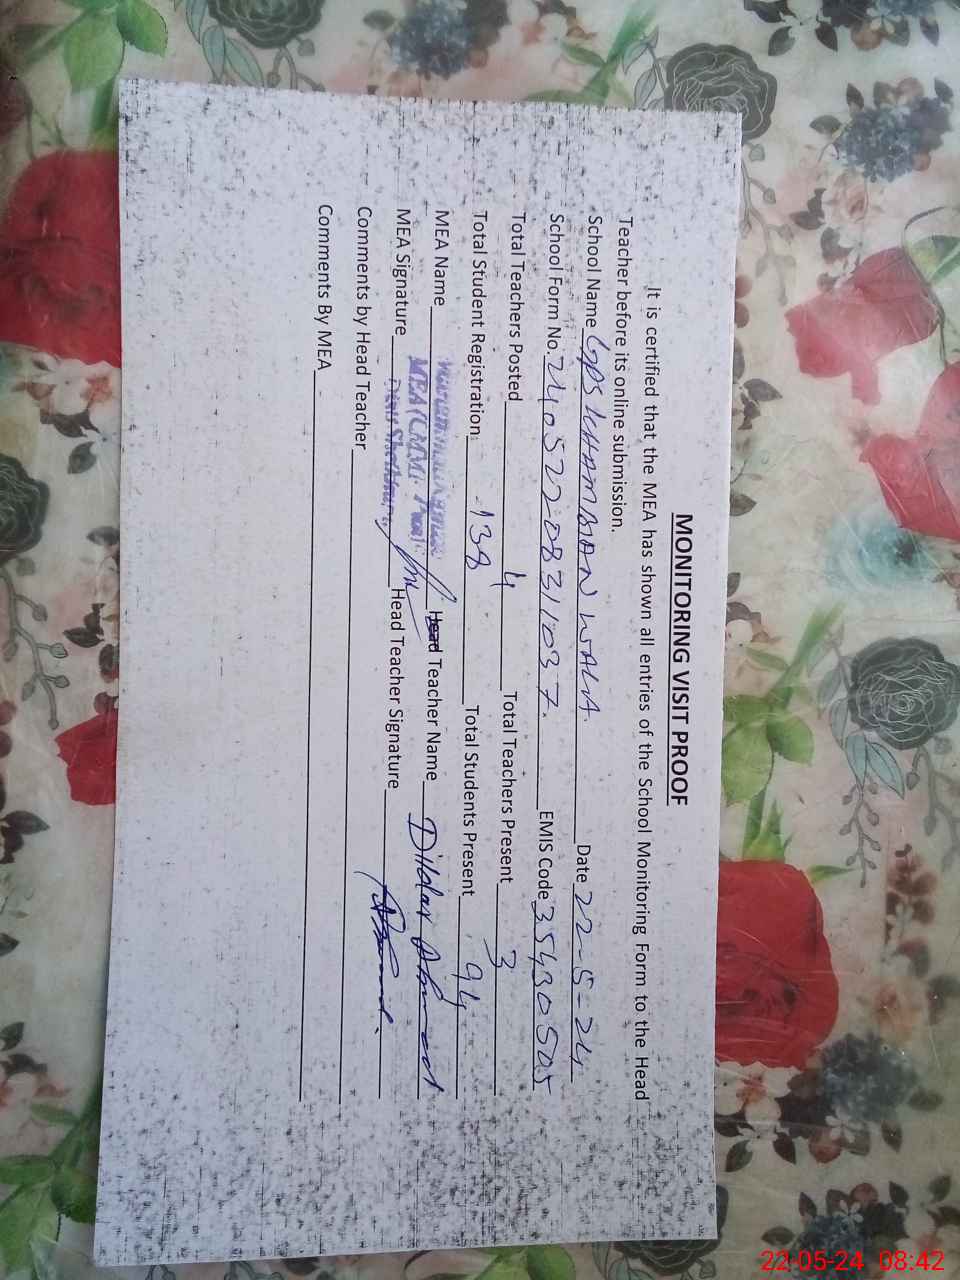 MONITORING VISIT PROOF
It is certified that the MEA has shown all entries of the School Monitoring Form to the Head
Teacher before its online submission.
School Name GPS KHAMBAN WALA Date 22-5-24
School Form No. 24052208311037. EMIS Code 35430505
Total Teachers Posted 4 Total Teachers Present 3
Total Student Registration 138 Total Students Present 94
MEA Name Head Teacher Name Dildar Ahmad
MEA (CMM)
MEA Signature Head Teacher Signature
Comments by Head Teacher
Comments By MEA
22-05-24 08:42